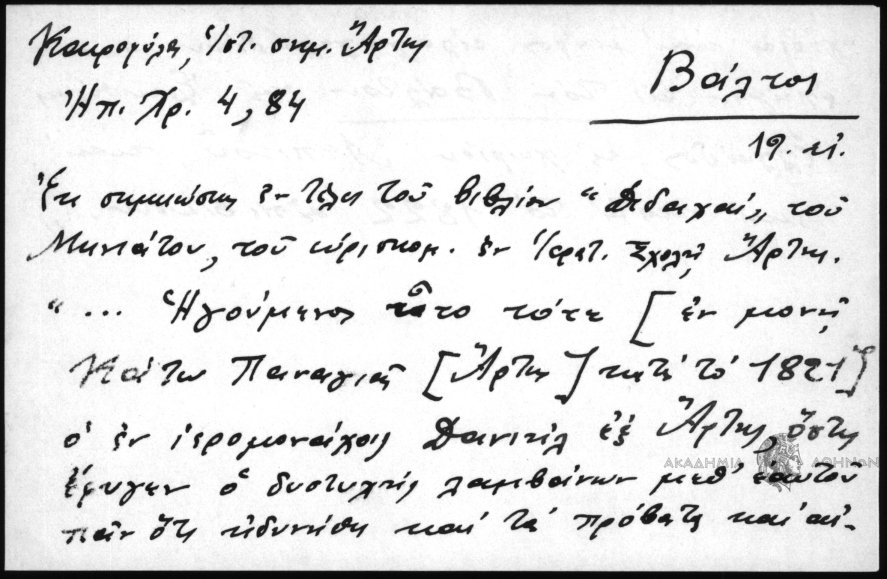 Καιρογύλη, Ἱστ. σημ. Ἄρτης
Ἠπ. Χρ. 4, 84
Βάλτος
19. αἰ.
Ἐκ σημειώσεως ἐν τέλει τοῦ βιβλίου "Διδαχαί" τοῦ
Μηνιάτου, τοῦ εὑρισκομ. ἐν Ἱερατ. Σχολῇ Ἄρτης.
"... Ἡγούμενος ἦτο τότε [ἐν μονῇ
Κάτω Παναγιᾶς [Ἄρτης] κατὰ τὸ 1821]
ὁ ἐν ἱερομονάχοις Δανιὴλ ἐξ Ἄρτης, ὅστις
ἔφυγεν ὁ δυστυχὴς λαμβάνων μεθ' ἑαυτοῦ
πᾶν ὅτι ἠδυνήθη καὶ τὰ πρόβατα καὶ αἶ-
ΑΚΑΔΗΜΙΑ ΑΘΗΝΩΝ